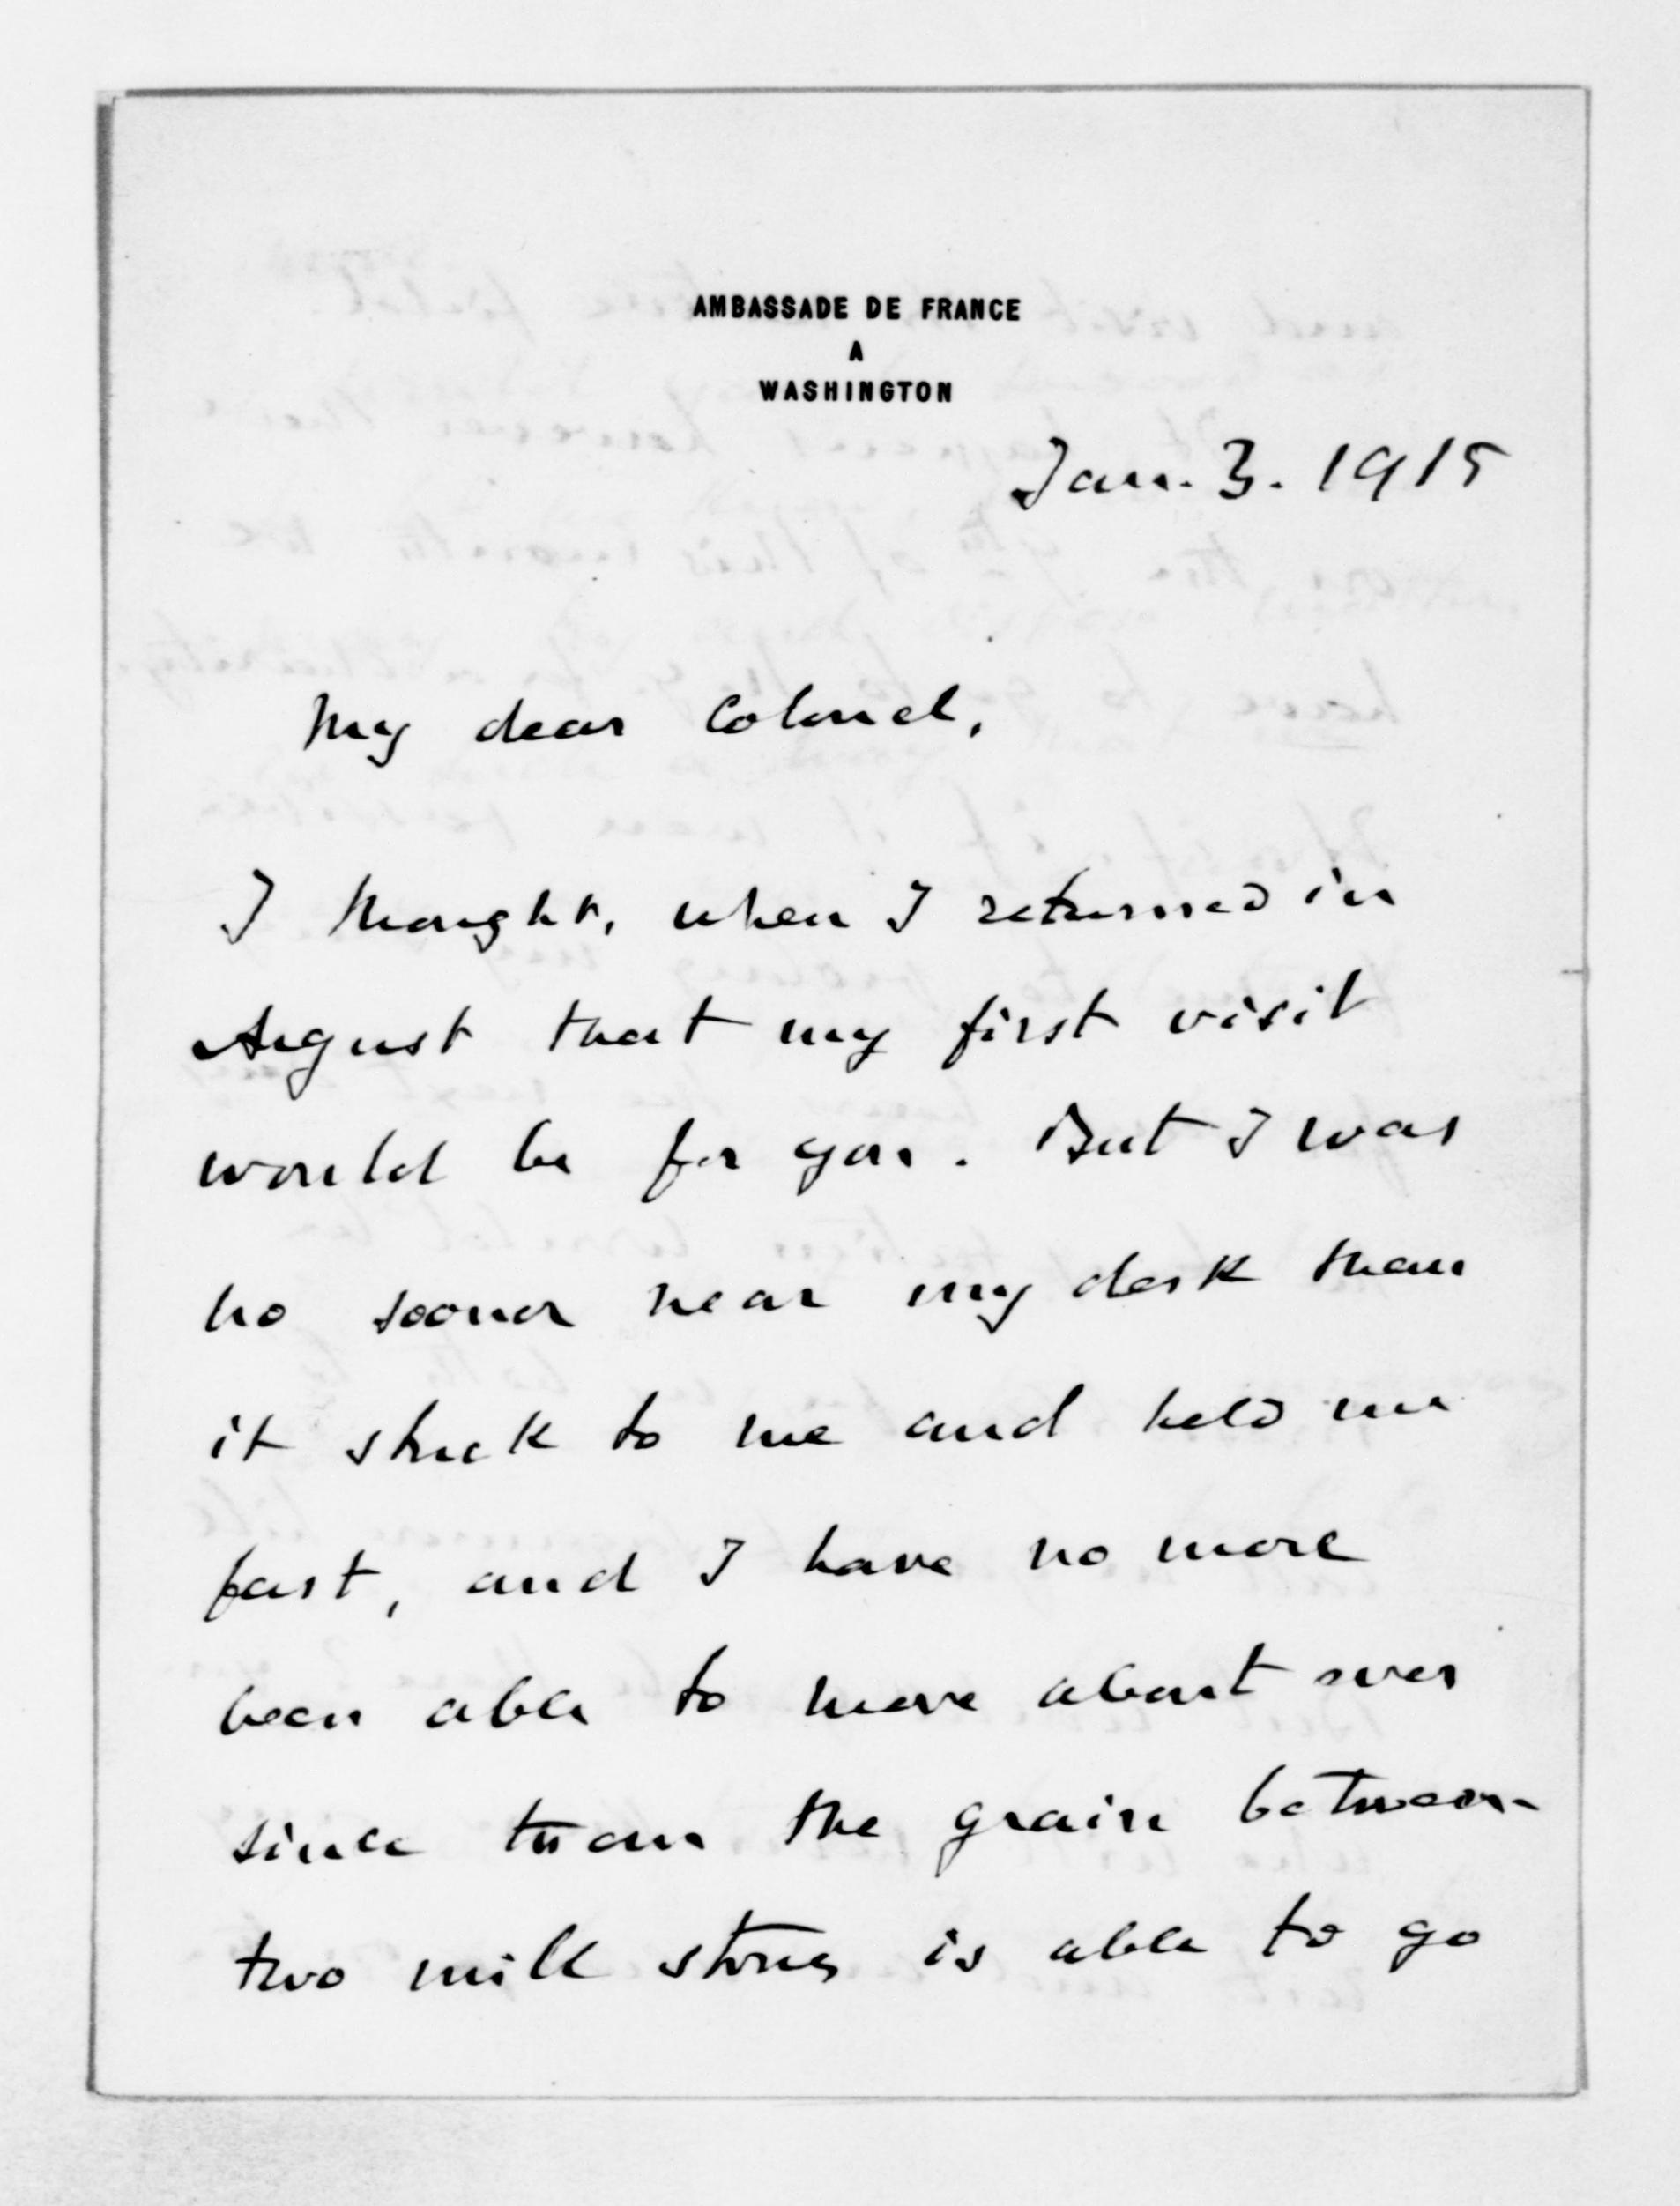 AMBASSADE DE FRANCE
A
WASHINGTON
Jan. 3. 1915
My dear Colonel,
I thought, when I returned in
August that my first visit
would be for you. But I was
no sooner near my desk than
it stuck to me and held me
fast, and I have no more
been able to move about ever
since than the grain between
two mill stones is able to go